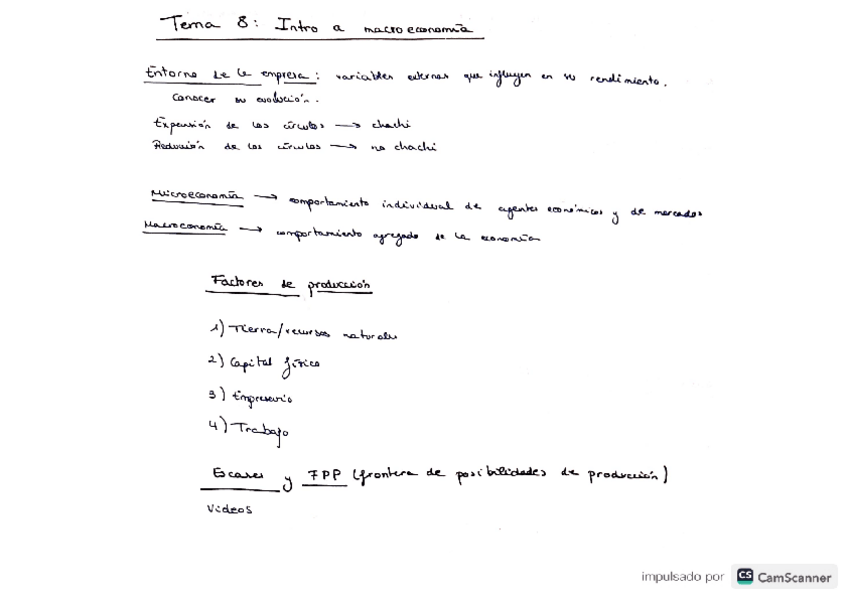 Tema 8: Intro a macroeconomía
Entorno de la empresa: variables externas que influyen en su rendimiento.
Conocer su evolución.
Expansión de los círculos → chachi
Reducción de los círculos → no chachi
Microeconomía → comportamiento individual de agentes económicos y de mercados
Macroconomía → comportamiento agregado de la economía
Factores de producción
1) Tierra/recursos naturales
2) Capital físico
3) Empresario
4) Trabajo
Escases y FPP (frontera de posibilidades de producción)
Videos
impulsado por CS CamScanner